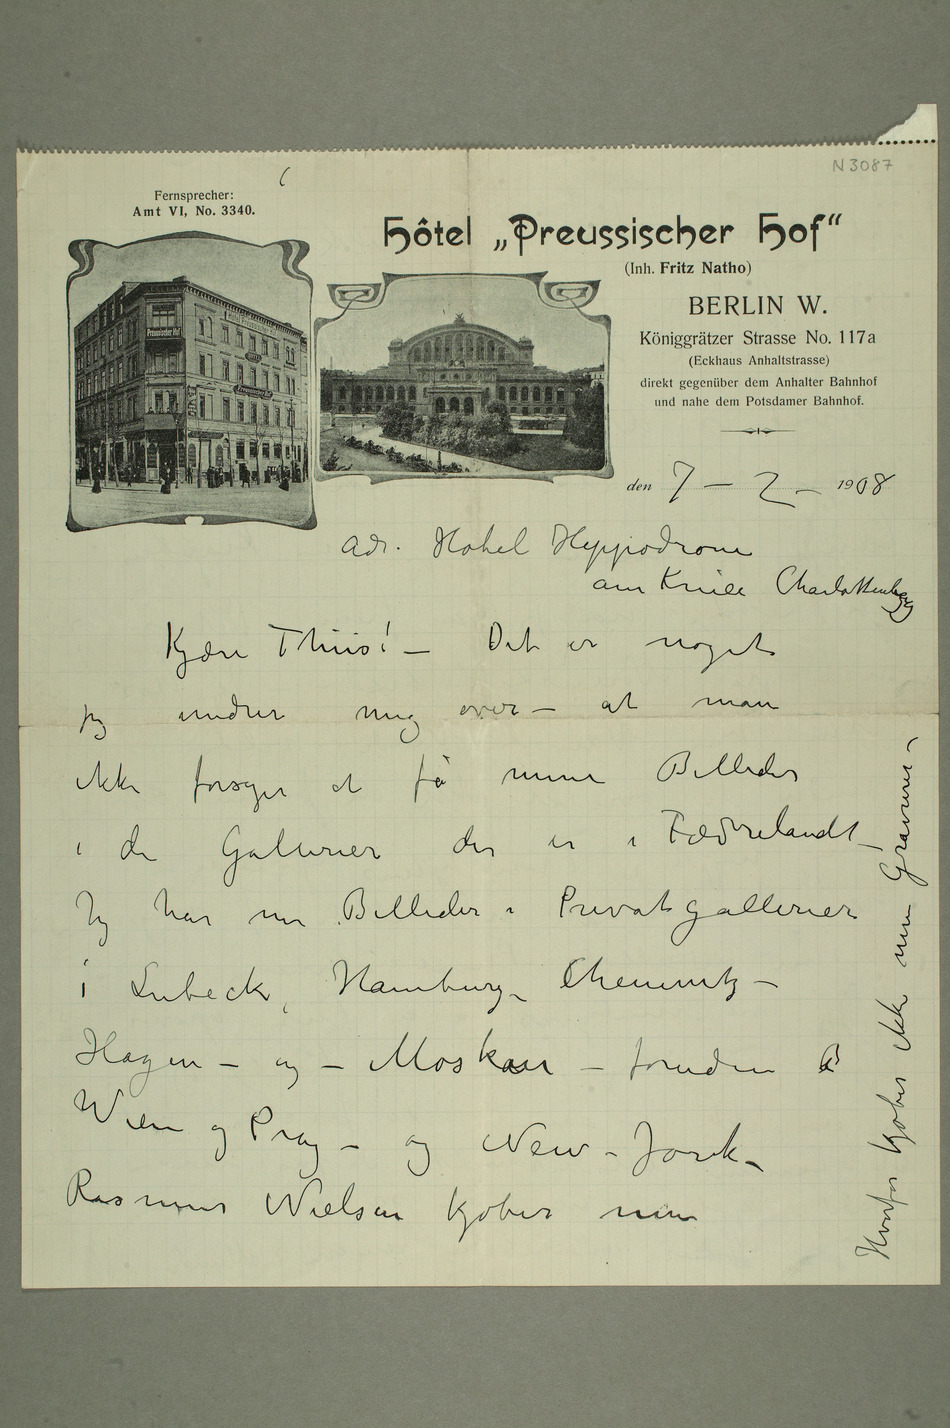 N 3087
Fernsprecher:
Amt VI, No. 3340.
Hôtel „Preussischer Hof“
(Inh. Fritz Natho)
BERLIN W.
Königgrätzer Strasse No. 117a
(Eckhaus Anhaltstrasse)
direkt gegenüber dem Anhalter Bahnhof
und nahe dem Potsdamer Bahnhof.
Preussischer Hof
HOTEL
den 7 – 2 – 1908
adr. Hotel Hippodrom
am Kniee Charlottenbg
Kjære Thiis! – Det er noget
jeg undrer mig over – at man
ikke forsøger at få mine Billeder
i de Gallerier der er i Fædrelandt –
Jeg har nu Billeder i Privatgallerier
i Lubeck, Hamburg – Chemnitz –
Hagen – og – Moskau – foruden
Wien og Prag – og New-Jork –
Rasmus Nielsen kjøber mine
Hvorfor kjøber ikke mine Gravurer –